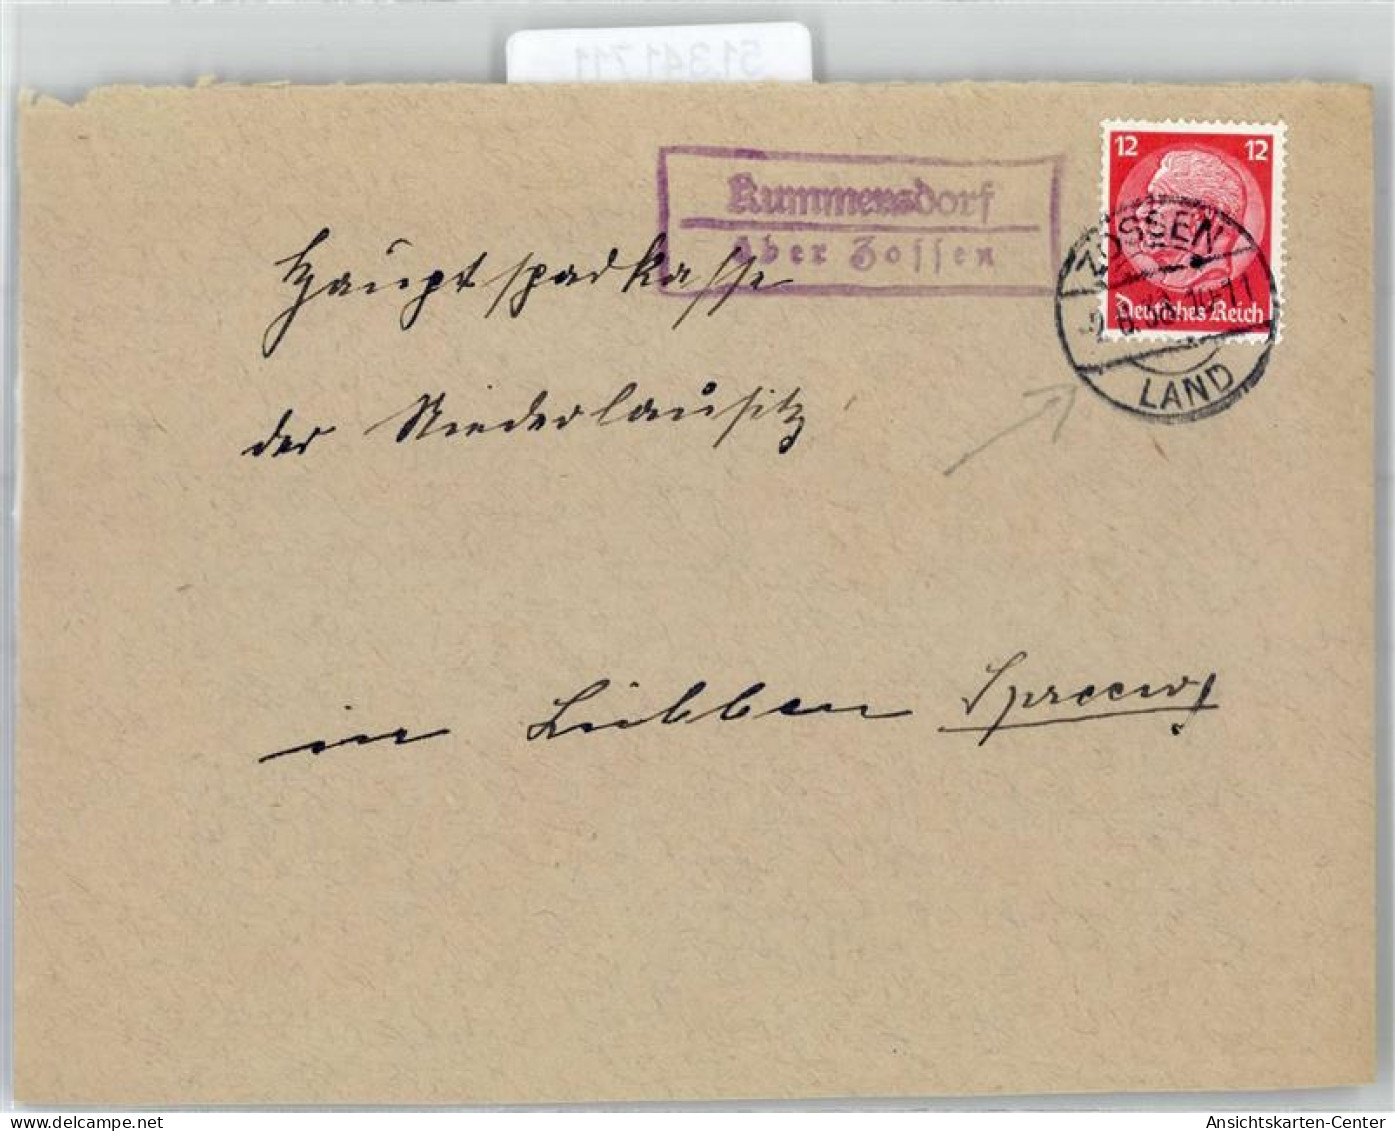 51.341.711
12 12
Kummersdorf
über Zossen
Deutsches Reich
ZOSSEN
LAND
Hauptsparkasse
der Niederlausitz
in Lübben Spreew.
Ansichtskarten-Center